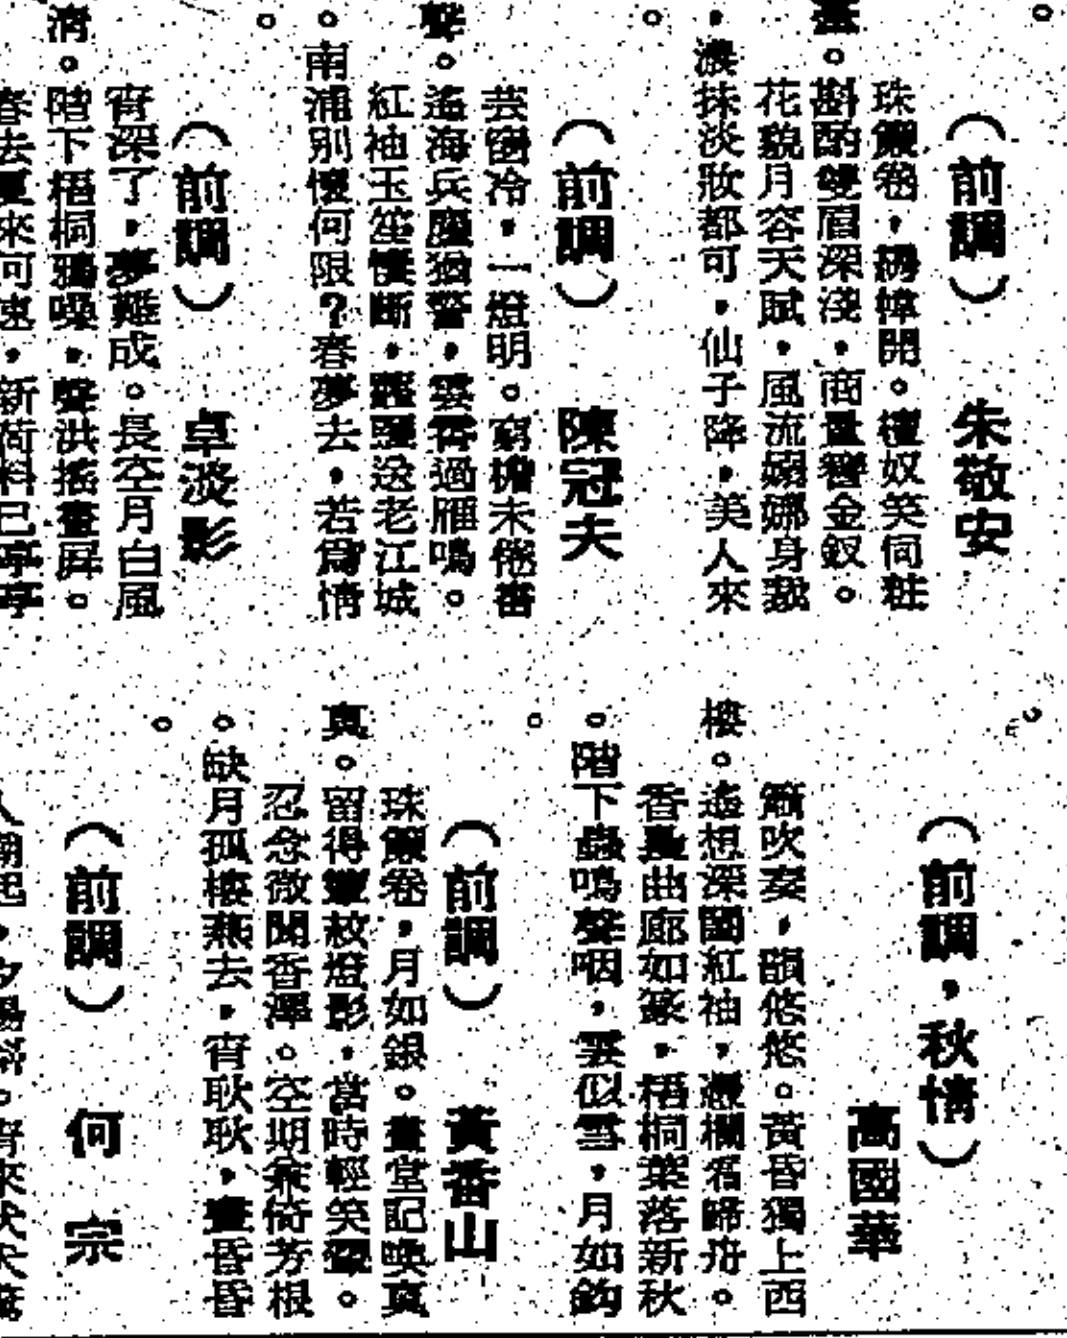 （前調）　朱敬安
珠簾卷，繡幃開。檀奴笑伺粧
臺。斟酌雙眉深淺，商量響金釵。
花貌月容天賦，風流嫋娜身裁
，濃抹淡妝都可，仙子降，美人來
。
（前調）　陳冠夫
芸窗冷，一燈明。窮檐未倦書
聲。遙海兵塵猶警，雲霄過雁鳴。
紅袖玉笙懷斷，羅
送老江城
。南浦別懷何限？春夢去，若爲情
。
（前調）　卓淡影
宵深了，夢難成。長空月白風
清。階下梧桐鴉噪，聲洪搖畫屏。
春去夏來何速，新荷料已亭亭
（前調，秋情）
高國華
簫吹妾，韻悠悠。黃昏獨上西
樓。遙想深閨紅袖，凝欄君歸舟。
香裊曲廊如篆，梧桐葉落新秋
。階下蟲鳴聲咽，雲似雪，月如鈎
。
（前調）　黃番山
珠簾卷，月如銀。畫堂記喚真
真。留得釵燈影，當時輕笑顰。
忍念微聞香澤。空期乘倚芳根
。缺月孤樓燕去，宵耿耿，晝昏昏
。
（前調）　何　宗
人潮起，夕陽斜。宵來